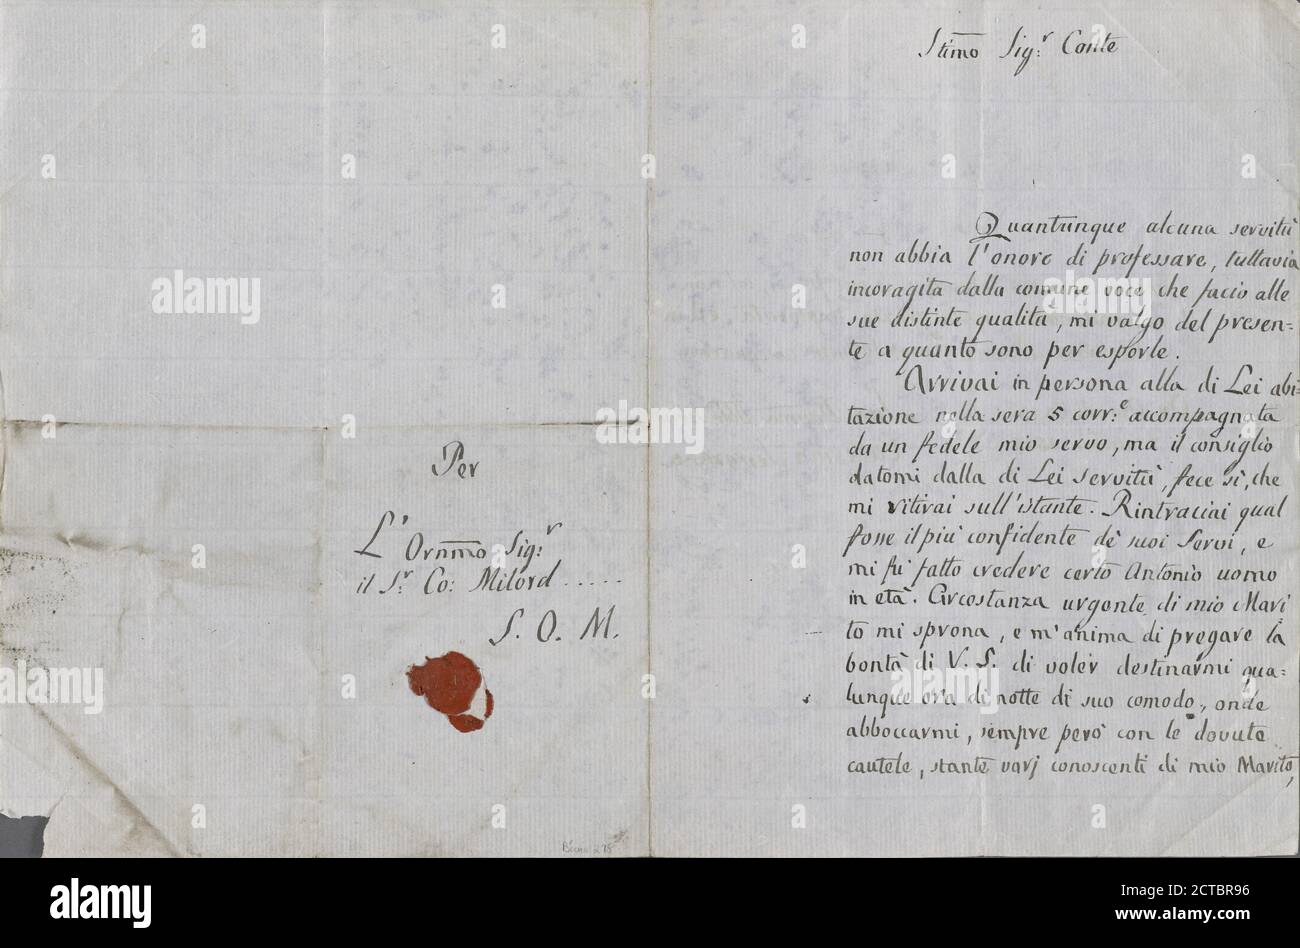 Per
L'Ornm̅o Sig:r
il S.r Co: Milord ......
S. O. M.
Stim̅o Sig:r Conte
Quantunque alcuna servitù
non abbia l'onore di professare, tuttavia
incoragita dalla comune voce che facio alle
sue distinte qualità, mi valgo del presen=
te a quanto sono per esporle.
Arrivai in persona alla di Lei abi=
tazione nella sera 5 corr:e accompagnata
da un fedele mio servo, ma il consiglio
datomi dalla di Lei servitù, fece sì, che
mi ritirai sull'istante. Rintraciai qual
fosse il più confidente de' suoi Servi, e
mi fu fatto credere certo Antonio uomo
in età. Circostanza urgente di mio Mari
to mi sprona, e m'anima di pregare la
bontà di V. S. di voler destinarmi qua=
lunque ora di notte di suo comodo, onde
abboccarmi, sempre però con le dovute
cautele, stante varj conoscenti di mio Marito,
alamy
Image ID: 2CTBR96
www.alamy.com